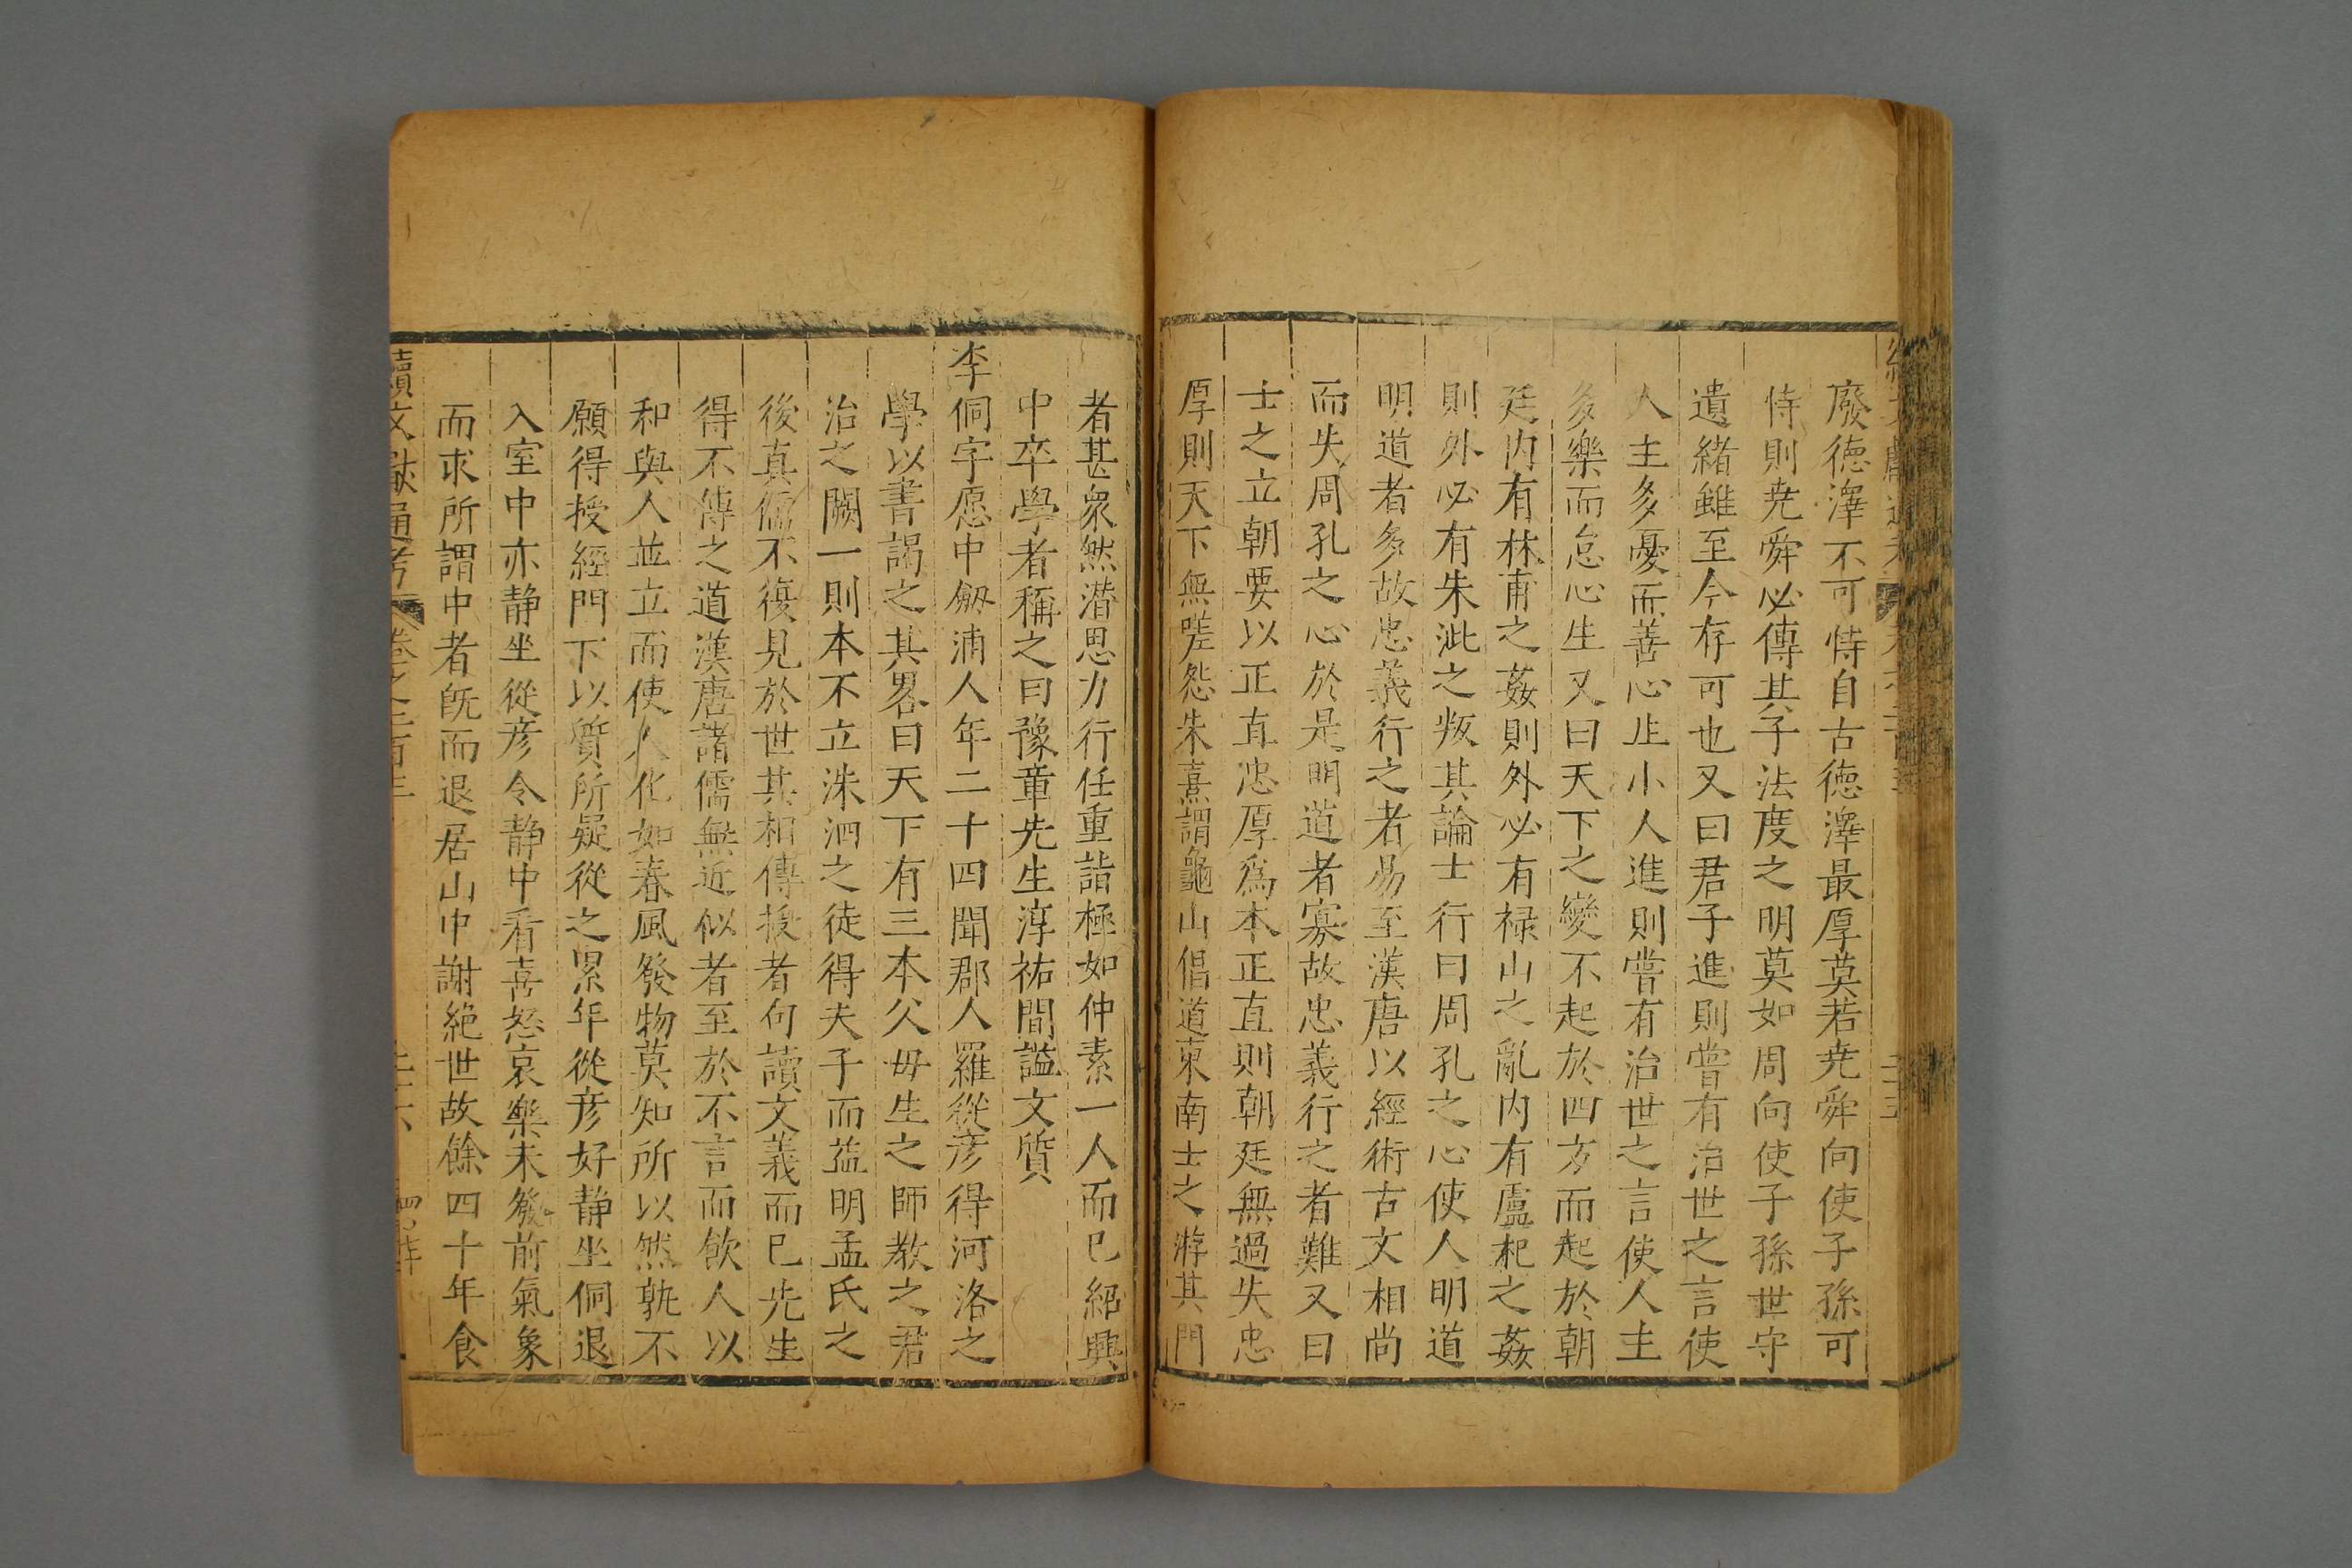 廢德澤不可恃自古德澤最厚莫若尭舜向使子孫可
恃則尭舜必傳其子法度之明莫如周向使子孫世守
遺緒雖至今存可也又曰君子進則嘗有治世之言使
人主多憂而善心生小人進則嘗有治世之言使人主
多樂而怠心生又曰天下之變不起於四方而起於朝
廷内有林甫之姦則外必有禄山之亂内有盧杞之姦
則外必有朱泚之叛其論士行曰周孔之心使人明道
明道者多故忠義行之者易至漢唐以經術古文相尚
而失周孔之心於是明道者寡故忠義行之者難又曰
士之立朝要以正直忠厚爲本正直則朝廷無過失忠
厚則天下無嗟怨朱熹謂龜山倡道東南士之游其門
者甚衆然潜思力行任重詣極如仲素一人而已紹興
中卒學者稱之曰豫章先生淳祐間謚文質
李侗字愿中劒浦人年二十四聞郡人羅從彦得河洛之
學以書謁之其畧曰天下有三本父母生之師教之君
治之闕一則本不立洙泗之徒得夫子而益明孟氏之
後真儒不復見於世其相傳授者句讀文義而已先生
得不傳之道漢唐諸儒無近似者至於不言而飲人以
和與人並立而使人化如春風發物莫知所以然孰不
願得授經門下以質所疑從之累年從彦好静坐侗退
入室中亦静坐從彦令静中看喜怒哀樂未發前氣象
而求所謂中者旣而退居山中謝絶世故餘四十年食
續文獻通考 卷之二百